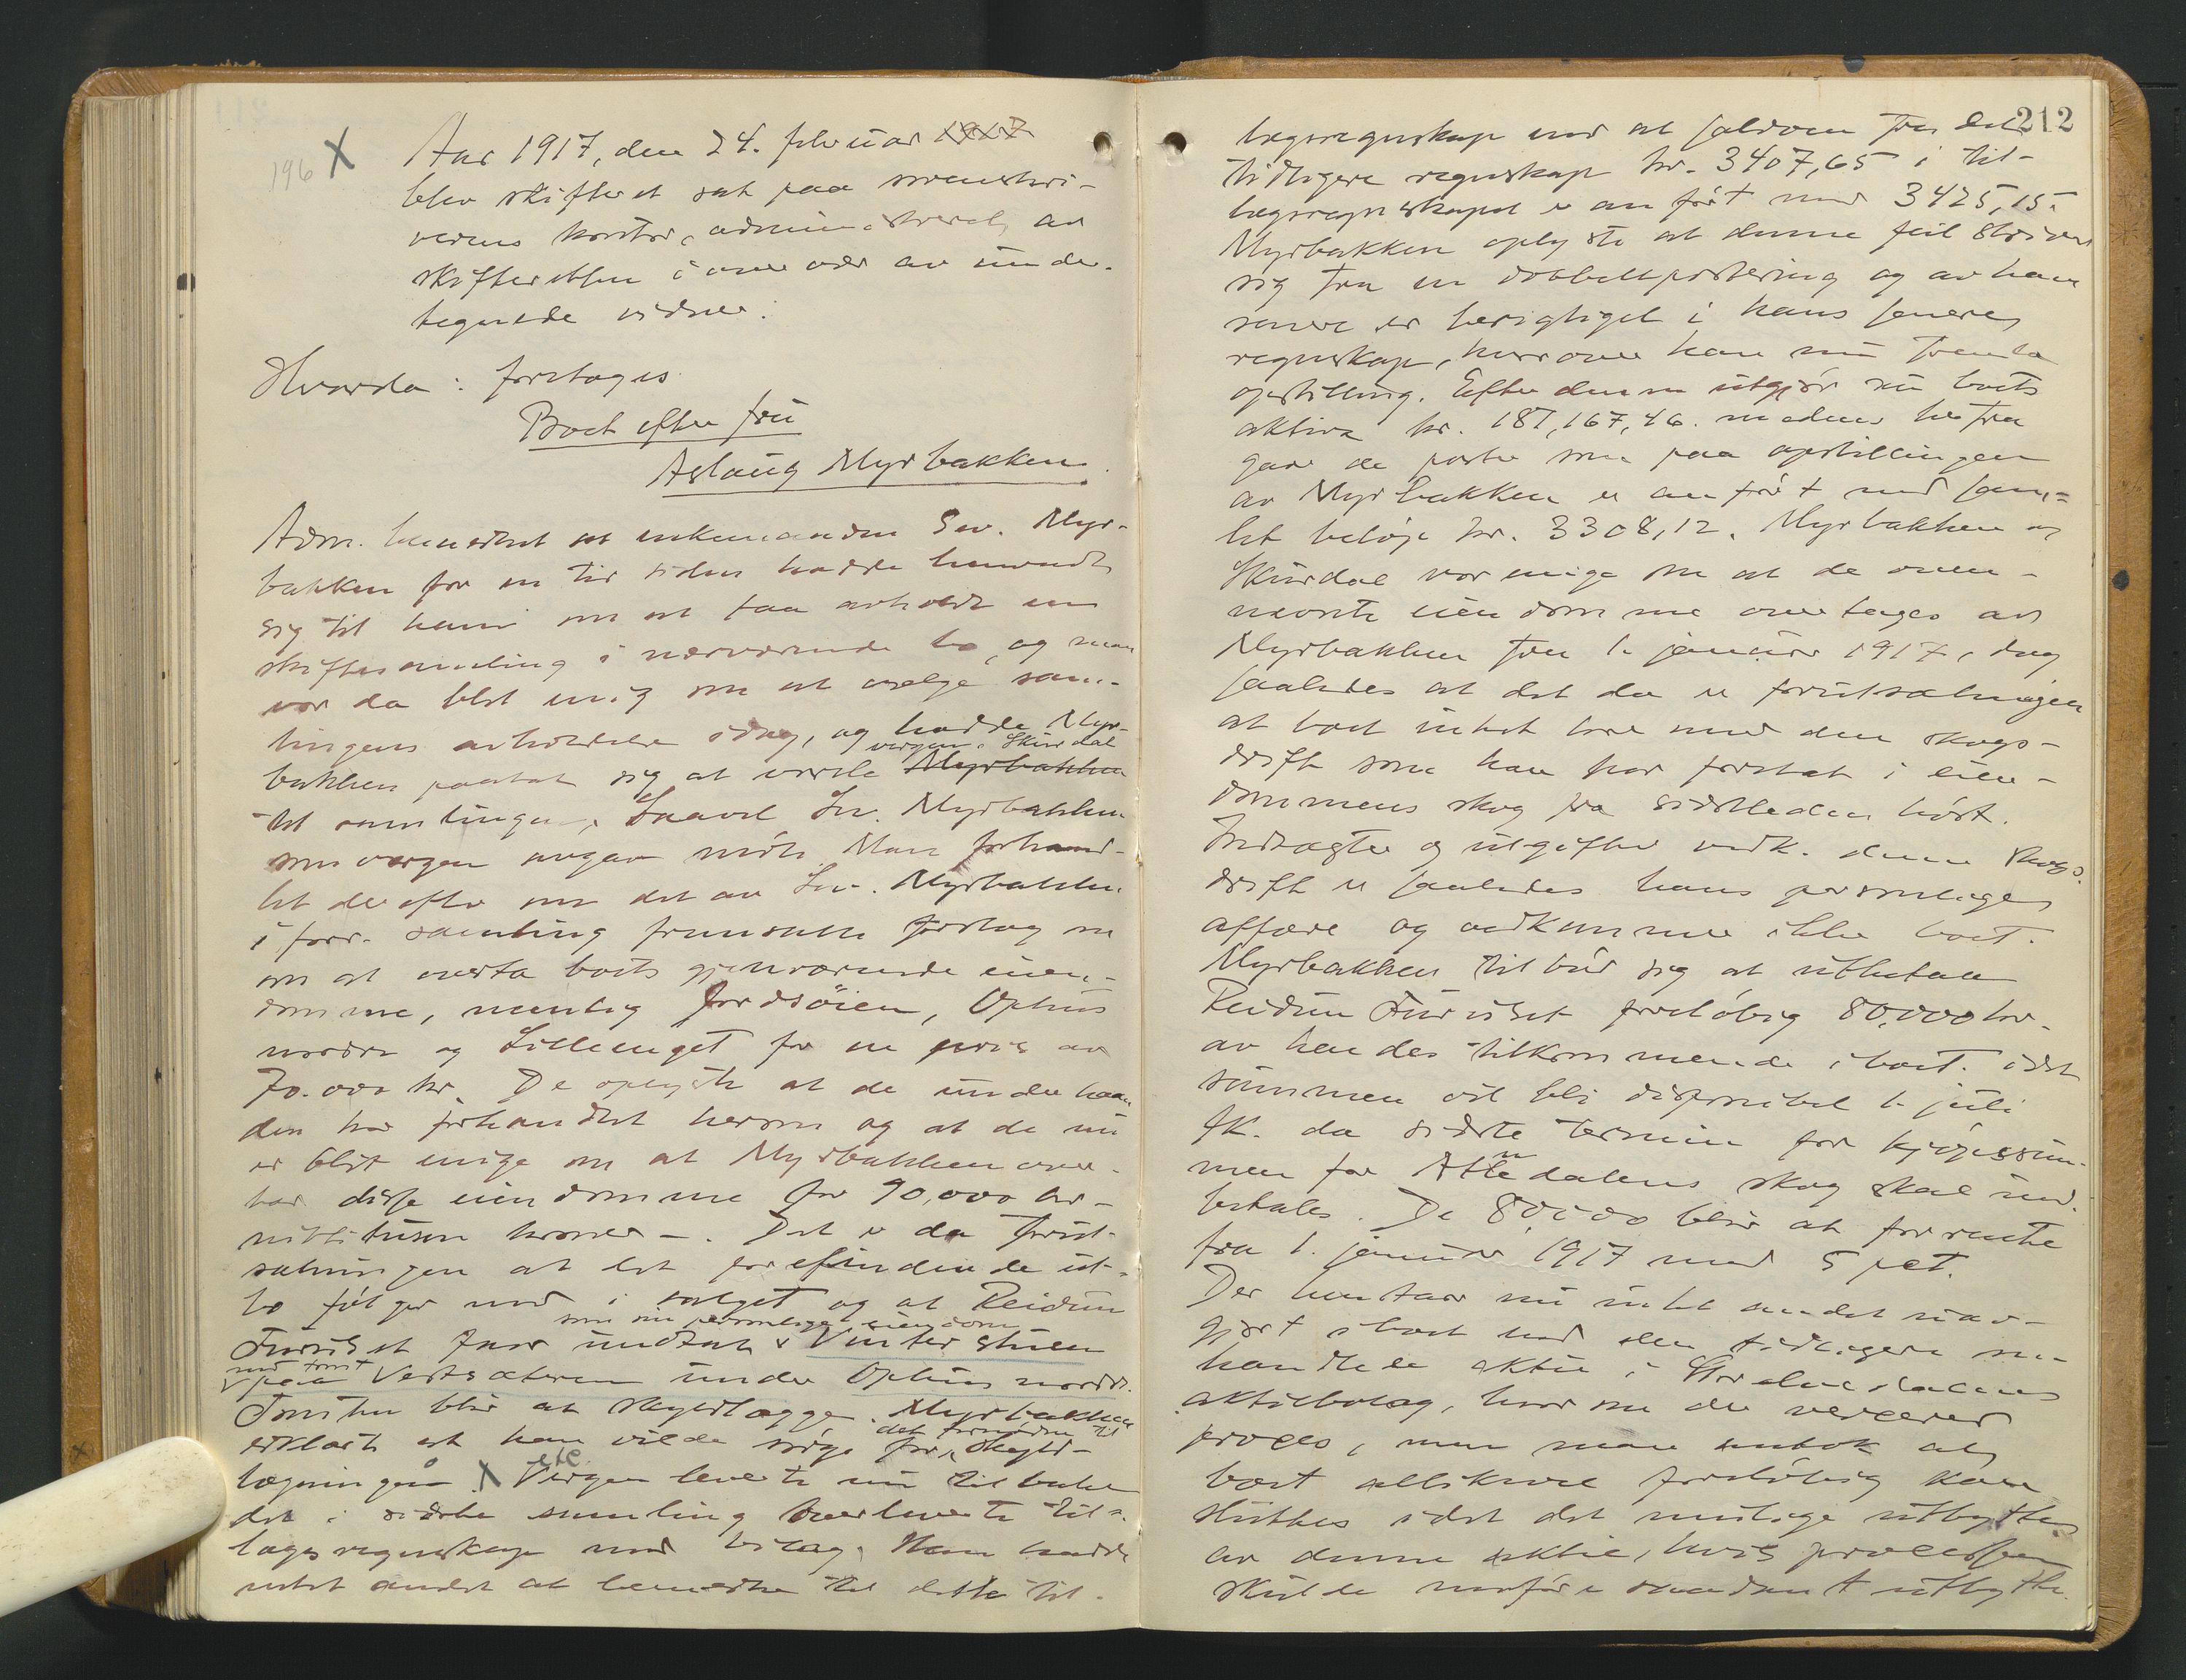 196 X Aar 1917, den 24. februar 1917
blev skifteret sat paa sorenskri-
verens kontor, administrert av
skifteretten i overvær av under-
tegnede vidner.
Hvorda: foretoges
Boet efter fru
Aslaug Myrbakken.
Adm. bemerket at enkemanden Sev. Myr-
bakken for en tid siden hadde henvendt
sig til ham om at faa avholdt en
skiftesamling i nærværende bo, og man
var da blit enig om at vælge sam-
lingens avholdelse idag, og hadde Myr-
vergen Skurdal
bakken paatat sig at varsle Myrbakken
til samlingen. Saavel Sev. Myrbakken
som vergen avgav møte. Man forhand-
let derefter om det av Sev. Myrbakken
i forr. samling fremsatte forslag om
om at overta boets gjenværende eien-
domme, nemlig Jordsöien, Ophus
nordre og Lilleenget for en pris av
70.000 kr. De oplyste at de underhaan-
den har forhandlet herom og at de nu
er blit enige om at Myrbakken over-
tar disse eiendomme for 90,000 kr -
nittitusen kroner -. Det er da forut-
sætningen at det forefindende ut-
bo følger med i salget og at Reidun
som sin personlige eiendom
Furuset faar undtat Vinterstuen
med tomt
paa Vestsæteren under Ophus nordre.
Tomten blir at skyldlægge. Myrbakken
det fornødne til
erklærte at han vilde sørge for skyld-
etc.
lægningen. X Vergen leverte nu tilbake
det i sidste samling overleverte til-
lægsregnskap med bilag. Han hadde
intet andet at bemerke til dette til-
212
lægsregnskap end at saldoen fra det
tidligere regnskap kr. 3407,65 i til-
lægsregnskapet er anført med 3425,15.
Myrbakken oplyste at denne feil skriver
sig fra en dobbeltpostering og av ham
senere er berigtiget i hans senere
regnskap, hvorover han nu fremla
opstilling. Efter denne utgjør nu boets
aktiva kr. 181,167,46. medens herfra
gaar de poster som paa opstillingen
av Myrbakken er anført med sam-
let beløp kr. 3308,12. Myrbakken og
Skurdal var enige om at de oven-
nævnte eiendomme overtages av
Myrbakken fra 1. januar 1917, dog
saaledes at det da er forutsætningen
at boet intet har med den skogs-
drift som han har foretat i eien-
dommens skog fra sidstleden høst.
Indtægter og utgifter vedk. denne skogs-
drift er saaledes hans personlige
affære og vedkommer ikke boet.
Myrbakken tilbød sig at utbetale
Reidun Furuset foreløbig 80,000 kr.
av hendes tilkommende i boet. idet
summen vil bli disponibel 1. juli
fk. da sidste termin for kjøpesum-
men for Atnedalens skog skal ind-
betales. De 80,000 blir at forrente
fra 1. januar 1917 med 5 pct.
Der henstaar nu intet andet uav-
gjort i boet end den tidligere om-
handlede aktie i Storelvedalens
aktiebolag, hvorom der verserer
proces, men man antok at
boet allikevel foreløbig kan
sluttes idet det mulige utbytte
av denne aktie, hvis processen
skulde medføre saadant utbytte